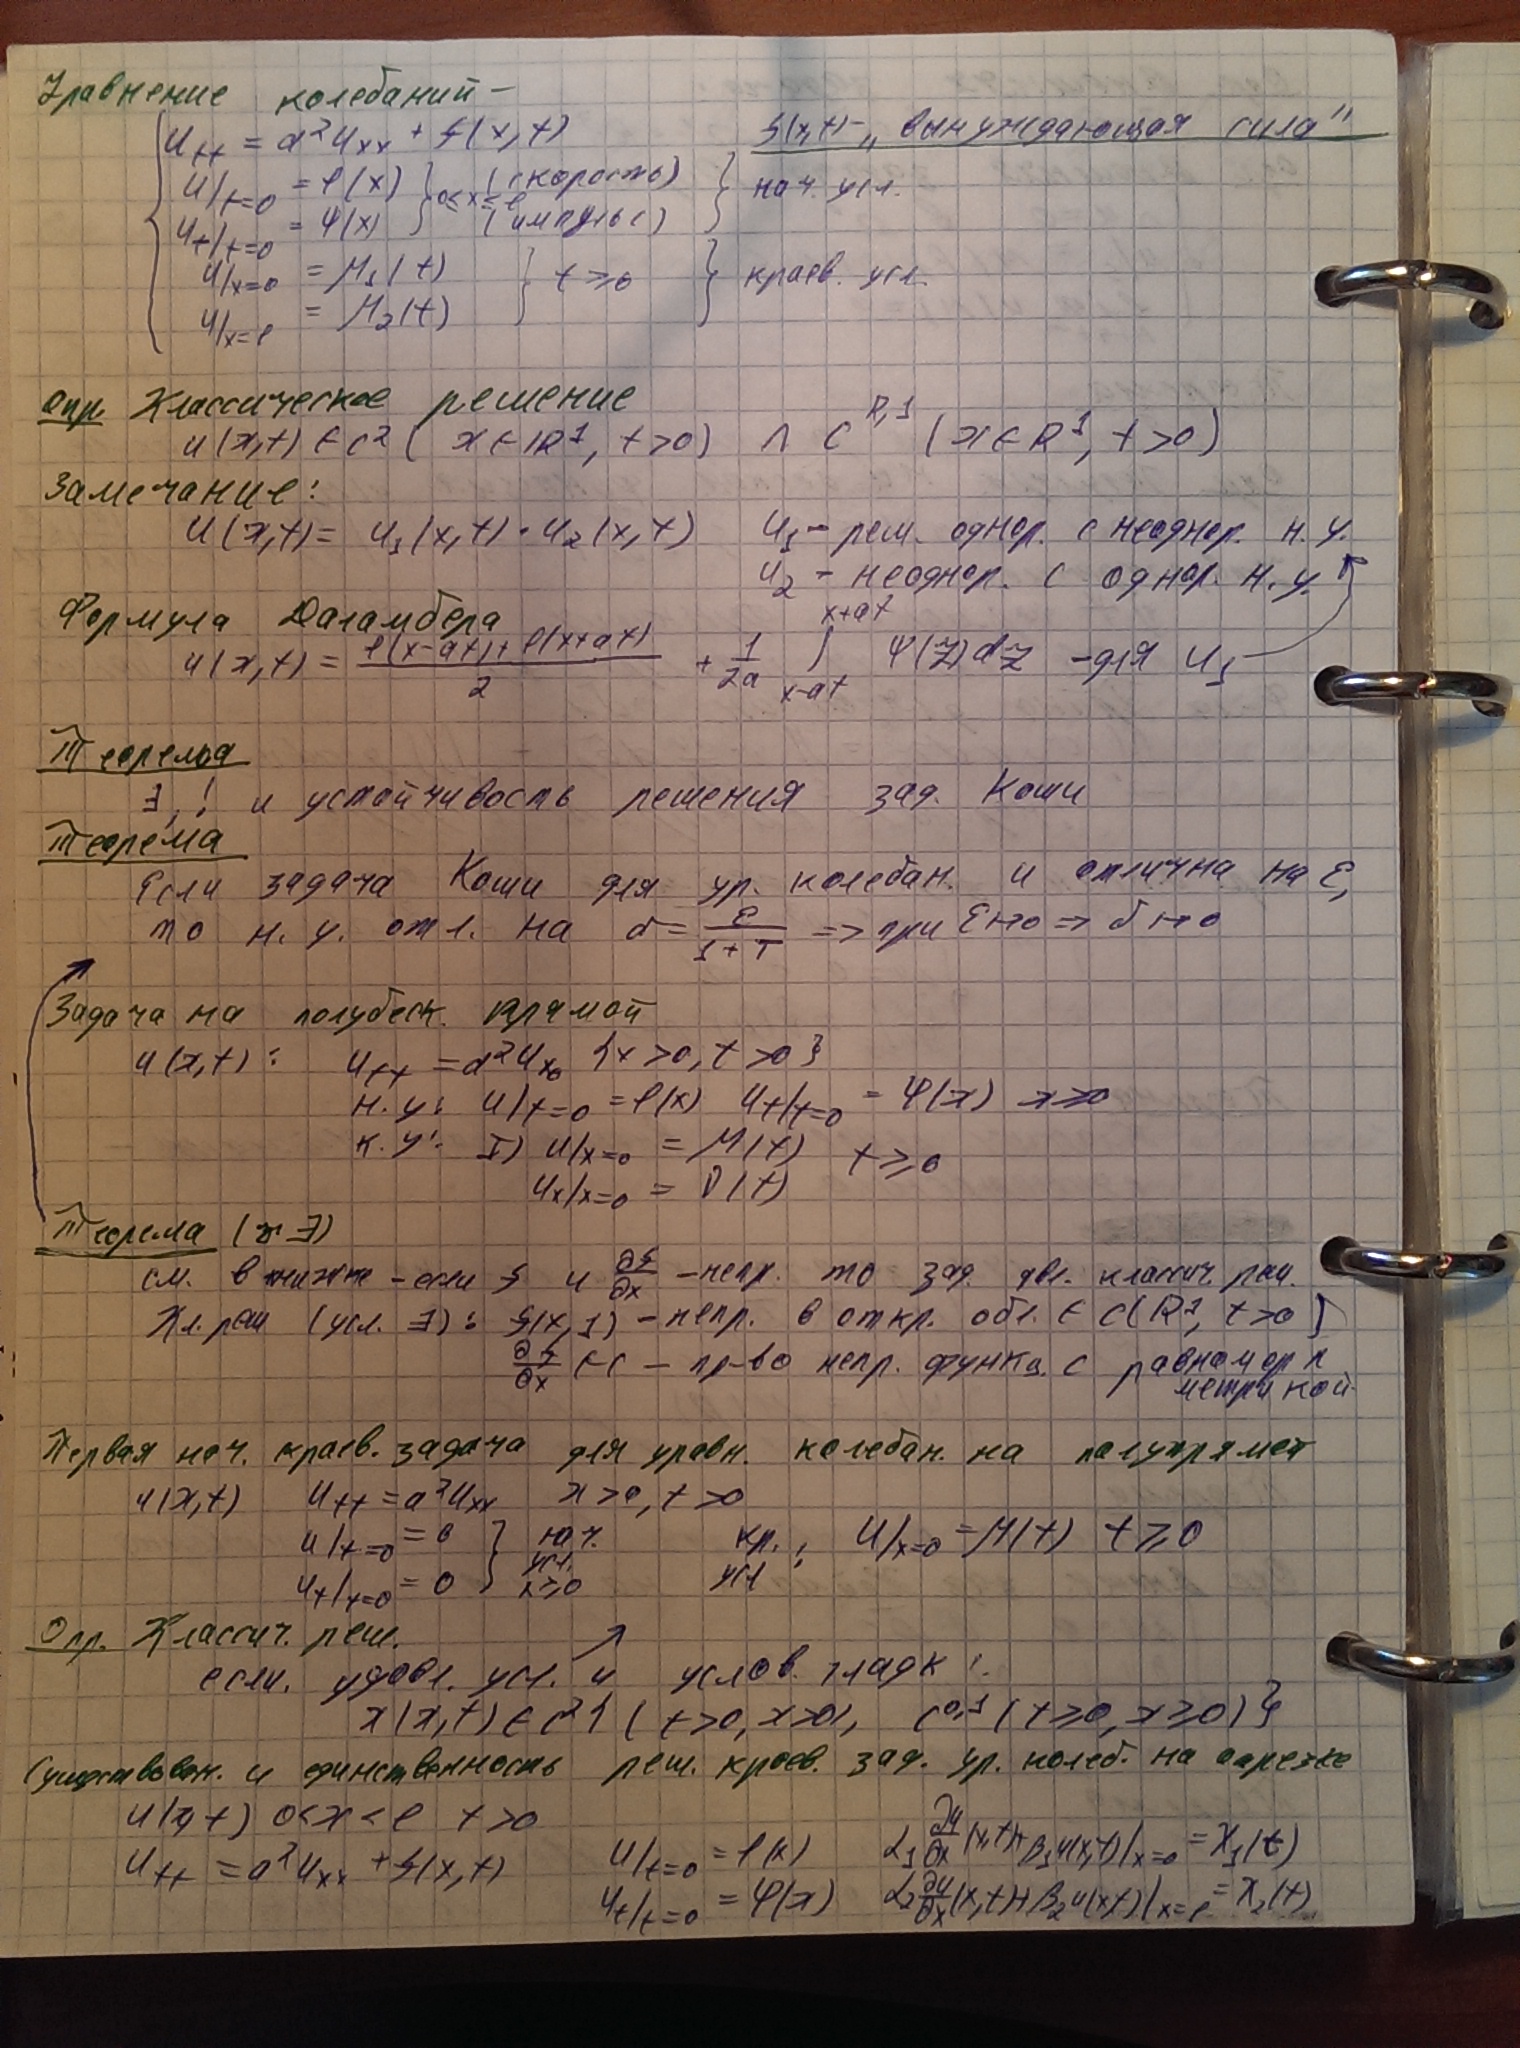 Уравнение колебаний –
u_tt = a²u_xx + f(x,t)   f(x,t) – „вынуждающая сила"
u|t=0 = φ(x) } 0≤x≤ℓ (скорость) } нач. усл.
u_t|t=0 = ψ(x) (импульс)
u|x=0 = μ1(t) } t ≥ 0 } краев. усл.
u|x=ℓ = μ2(t)
Опр. Классическое решение
u(x,t) ∈ C² ( x ∈ R¹, t>0) ∩ C (x ∈ R¹, t>0)
Замечание:
u(x,t) = u1(x,t) · u2(x,t)   u1 – реш. однор. с неоднор. н.у.
u2 – неоднор. с однор. н.у.
Формула Даламбера
u(x,t) = (φ(x-at) + φ(x+at))/2 + 1/2a ∫_{x-at}^{x+at} ψ(z)dz – для u1
Теорема
∃, ! и устойчивость решения зад. Коши
Теорема
Если задача Коши для ур. колебан. и отлична на ε,
то н.у. отл. на δ = ε/(1+T) => при ε↦0 => δ↦0
Задача на полубеск. прямой
u(x,t): u_tt = a²u_xx {x>0, t>0}
н.у: u|t=0 = φ(x) u_t|t=0 = ψ(x) x≥0
к.у: I) u|x=0 = μ(t) t ≥ 0
u_x|x=0 = ν(t)
Теорема
см. в книжке – если f и ∂f/∂x – непр. то зад. явл. классич. реш.
Кл. реш (усл. ∃): f(x,t) – непр. в откр. обл. ∈ C(R¹, t>0)
∂f/∂x ∈ C – пр-во непр. функц. с равномерн
метрикой
Первая нач. краев. задача для уравн. колебан. на полупрямой
u(x,t) u_tt = a²u_xx x>0, t>0
u|t=0 = 0 } нач. усл. x≥0   кр. усл : u|x=0 = μ(t) t ≥ 0
u_t|t=0 = 0
Опр. Классич. реш.
если. удовл. усл. и услов. гладк:
x(x,t) ∈ C²{(t>0, x>0), C⁰,¹(t≥0, x≥0)}
Существован. и единственность реш. краев. зад. ур. колеб. на отрезке
u(x,t) 0<x<ℓ t>0
u_tt = a²u_xx + f(x,t)   u|t=0 = φ(x)   α1 ∂u/∂x (x,t) + β1u(x,t)|x=0 = χ1(t)
u_t|t=0 = ψ(x)   α2 ∂u/∂x (x,t) + β2u(x,t)|x=ℓ = χ2(t)